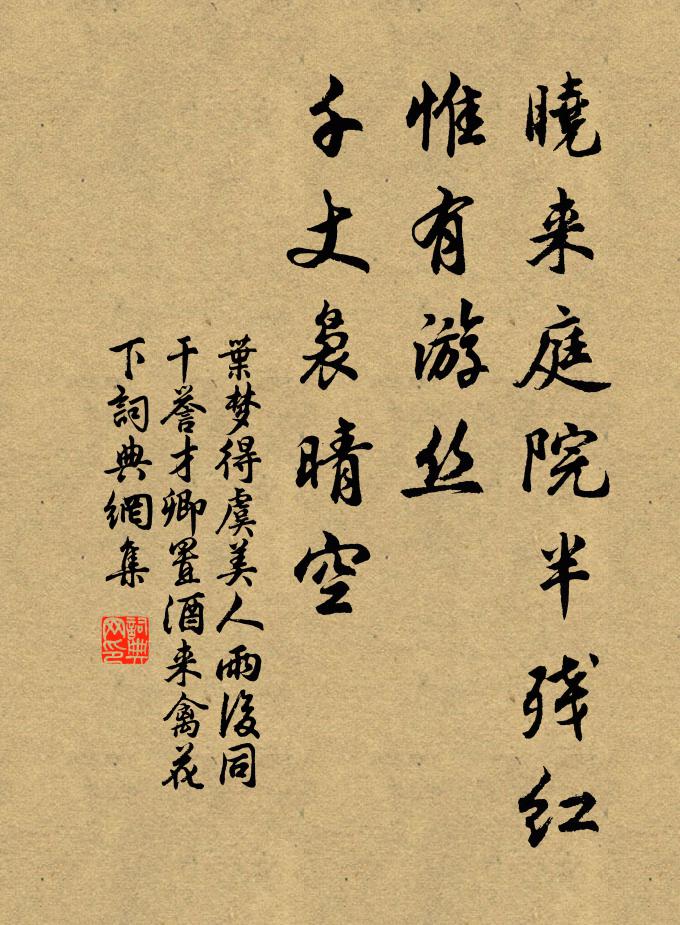 曉来庭院半残红
惟有游丝
千丈袅晴空
葉梦得虞美人雨後同
干誉才卿置酒来禽花
下詞典網集
詞典网印